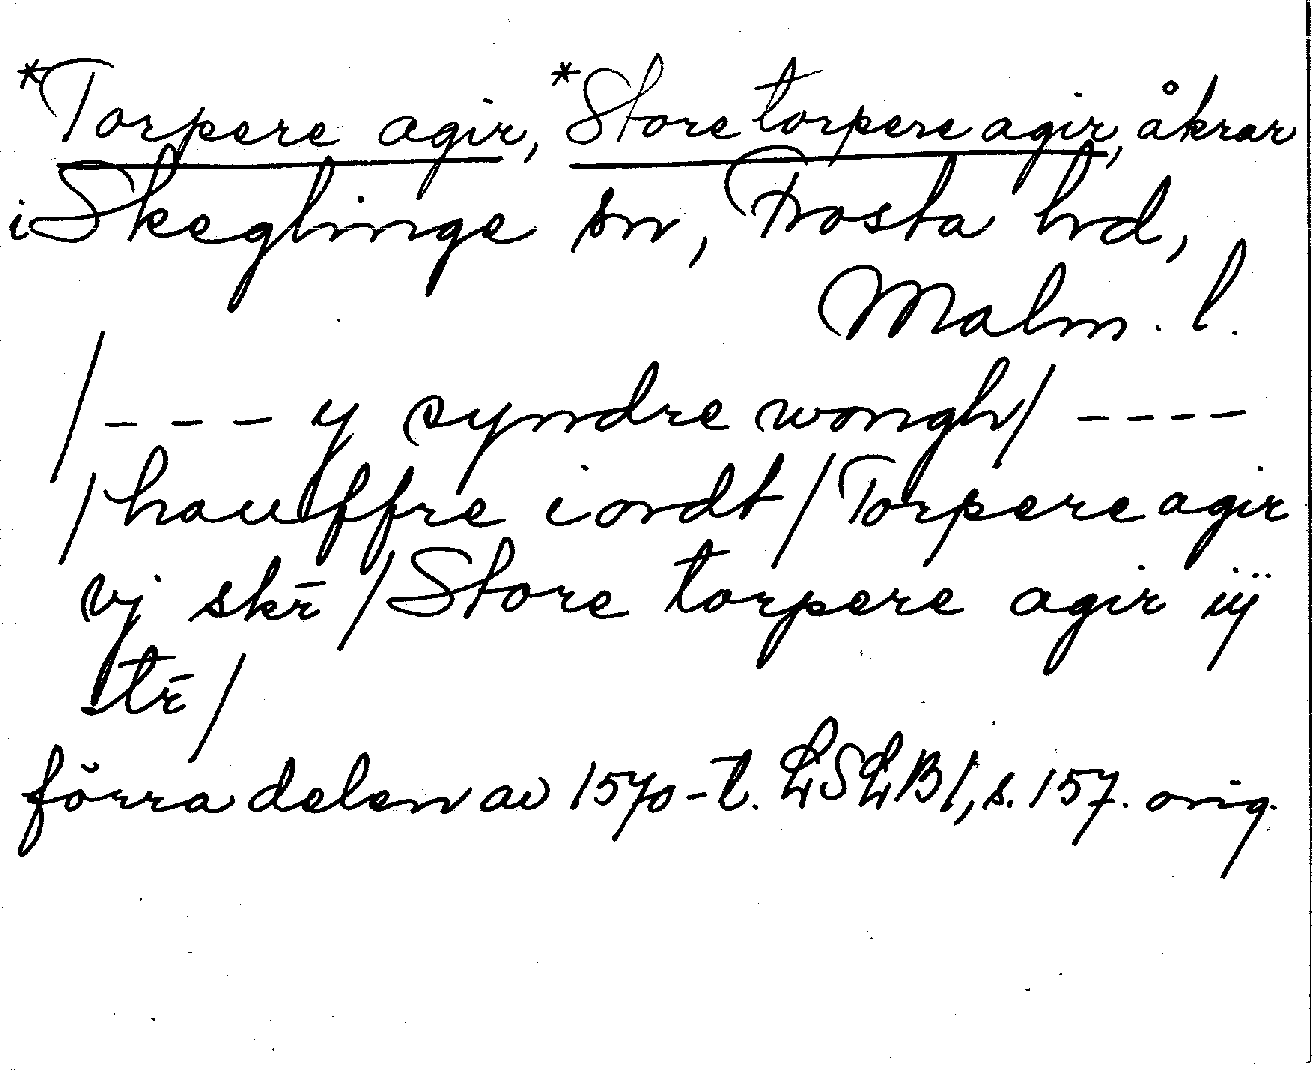 *Torpere agir, *Store torpere agir, åkrar
i Skeglinge sn, Frosta hrd,
Malm. l.
/ - - - y syndre wongh / - - - -
/ hauffre iordt / Torpere agir
vj skr̄ / Store torpere agir iij
str̄ /
förra delen av 1570-t. LSLB 1, s. 157. orig.